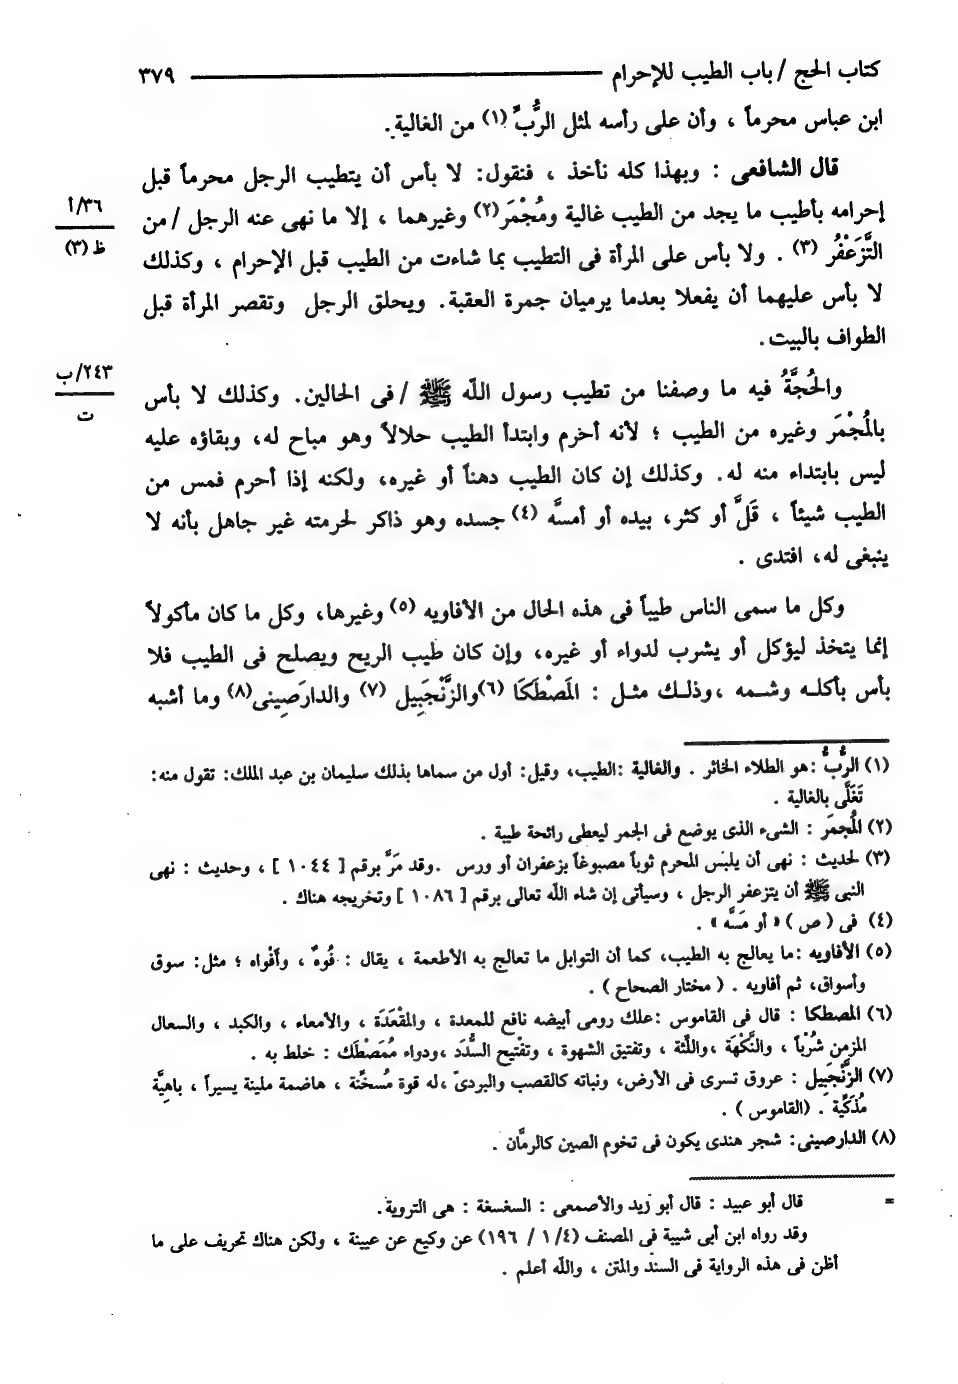 كتاب الحج / باب الطيب للإحرام ٣٧٩
ابن عباس محرماً ، وأن على رأسه لمثل الرُّبِّ (١) من الغالية.
قال الشافعى : وبهذا كله نأخذ ، فنقول: لا بأس أن يتطيب الرجل محرماً قبل
إحرامه بأطيب ما يجد من الطيب غالية ومُجْمَر(٢) وغيرهما ، إلا ما نهى عنه الرجل / من
التَّزَعْفُر (٣) . ولا بأس على المرأة فى التطيب بما شاءت من الطيب قبل الإحرام ، وكذلك
لا بأس عليهما أن يفعلا بعدما يرميان جمرة العقبة. ويحلق الرجل وتقصر المرأة قبل
الطواف بالبيت.
٣٦/أ
ظ (٣)
والحُجَّةُ فيه ما وصفنا من تطيب رسول اللّه ﷺ / فى الحالين. وكذلك لا بأس
بالمُجْمَر وغيره من الطيب ؛ لأنه أحرم وابتدأ الطيب حلالاً وهو مباح له، وبقاؤه عليه
ليس بابتداء منه له. وكذلك إن كان الطيب دهناً أو غيره، ولكنه إذا أحرم فمس من
الطيب شيئاً ، قَلَّ أو كثر، بيده أو أمسَّه (٤) جسده وهو ذاكر لحرمته غير جاهل بأنه لا
ينبغى له، افتدى .
٢٤٣/ب
ت
وكل ما سمى الناس طيباً فى هذه الحال من الأفاويه (٥) وغيرها، وكل ما كان مأكولاً
إنما يتخذ ليؤكل أو يشرب لدواء أو غيره، وإن كان طيب الريح ويصلح فى الطيب فلا
بأس بأكله وشمه ،وذلك مثل : المَصْطَكَا (٦)والزَّنْجَبِيل (٧) والدارَصِينى(٨) وما أشبه
(١) الرُّبُّ :هو الطلاء الخاثر . والغالية :الطيب، وقيل: أول من سماها بذلك سليمان بن عبد الملك: تقول منه:
تَغَلَّى بالغالية .
(٢) المُجمَر : الشىء الذى يوضع فى الجمر ليعطى رائحة طيبة .
(٣) لحديث : نهى أن يلبس المحرم ثوباً مصبوغاً بزعفران أو ورس .وقد مَرَّ برقم [ ١٠٤٤ ] ، وحديث : نهى
النبى ﷺ أن يتزعفر الرجل ، وسيأتى إن شاء اللّه تعالى برقم [ ١٠٨٦ ] وتخريجه هناك .
(٤) فى ( ص ) « أو مَسَّه » .
(٥) الأفاويه :ما يعالج به الطيب، كما أن التوابل ما تعالج به الأطعمة ، يقال : فُوهٌ ، وأفْواه ؛ مثل: سوق
وأسواق، ثم أفاويه . ( مختار الصحاح ) .
(٦) المصطكا : قال فى القاموس :علك رومى أبيضه نافع للمعدة ، والمقْعَدَة ، والأمعاء ، والكبد ، والسعال
المزمن شُرْباً ، والنَّكْهَة ،واللِّثة ، وتفتيق الشهوة ، وتفْتيح السُّدَد ،ودواء مُمَصْطَك : خلط به .
(٧) الزَّنْجَبِيل : عروق تسرى فى الأرض، ونباته كالقصب والبردىّ ،له قوة مُسخِّنة ، هاضمة ملينة يسيراً ، باهِيَّة
مُذَكِّية . (القاموس ) .
(٨) الدارصينى: شجر هندى يكون فى تخوم الصين كالرمَّان .
= قال أبو عبيد : قال أبو زيد والأصمعى : السغسغة : هى التروية.
وقد رواه ابن أبى شيبة فى المصنف (٤/ ١ / ١٩٦) عن وكيع عن عيينة ، ولكن هناك تحريف على ما
أظن فى هذه الرواية فى السند والمتن ، واللّه أعلم .